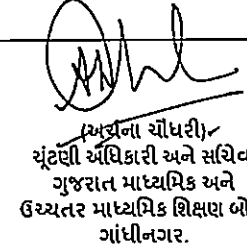 (અર્ચના ચૌધરી)
ચૂંટણી અધિકારી અને સચિવ
ગુજરાત માધ્યમિક અને
ઉચ્ચતર માધ્યમિક શિક્ષણ બો
ગાંધીનગર.